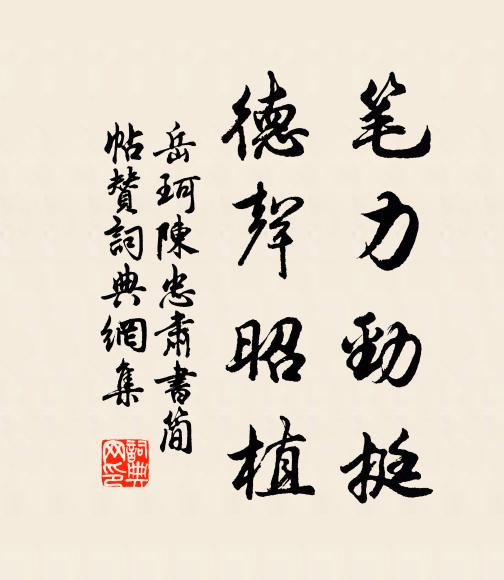 笔力勁挺
德聲昭植
岳珂陳忠肅書簡
帖贊詞典網集
詞典网印